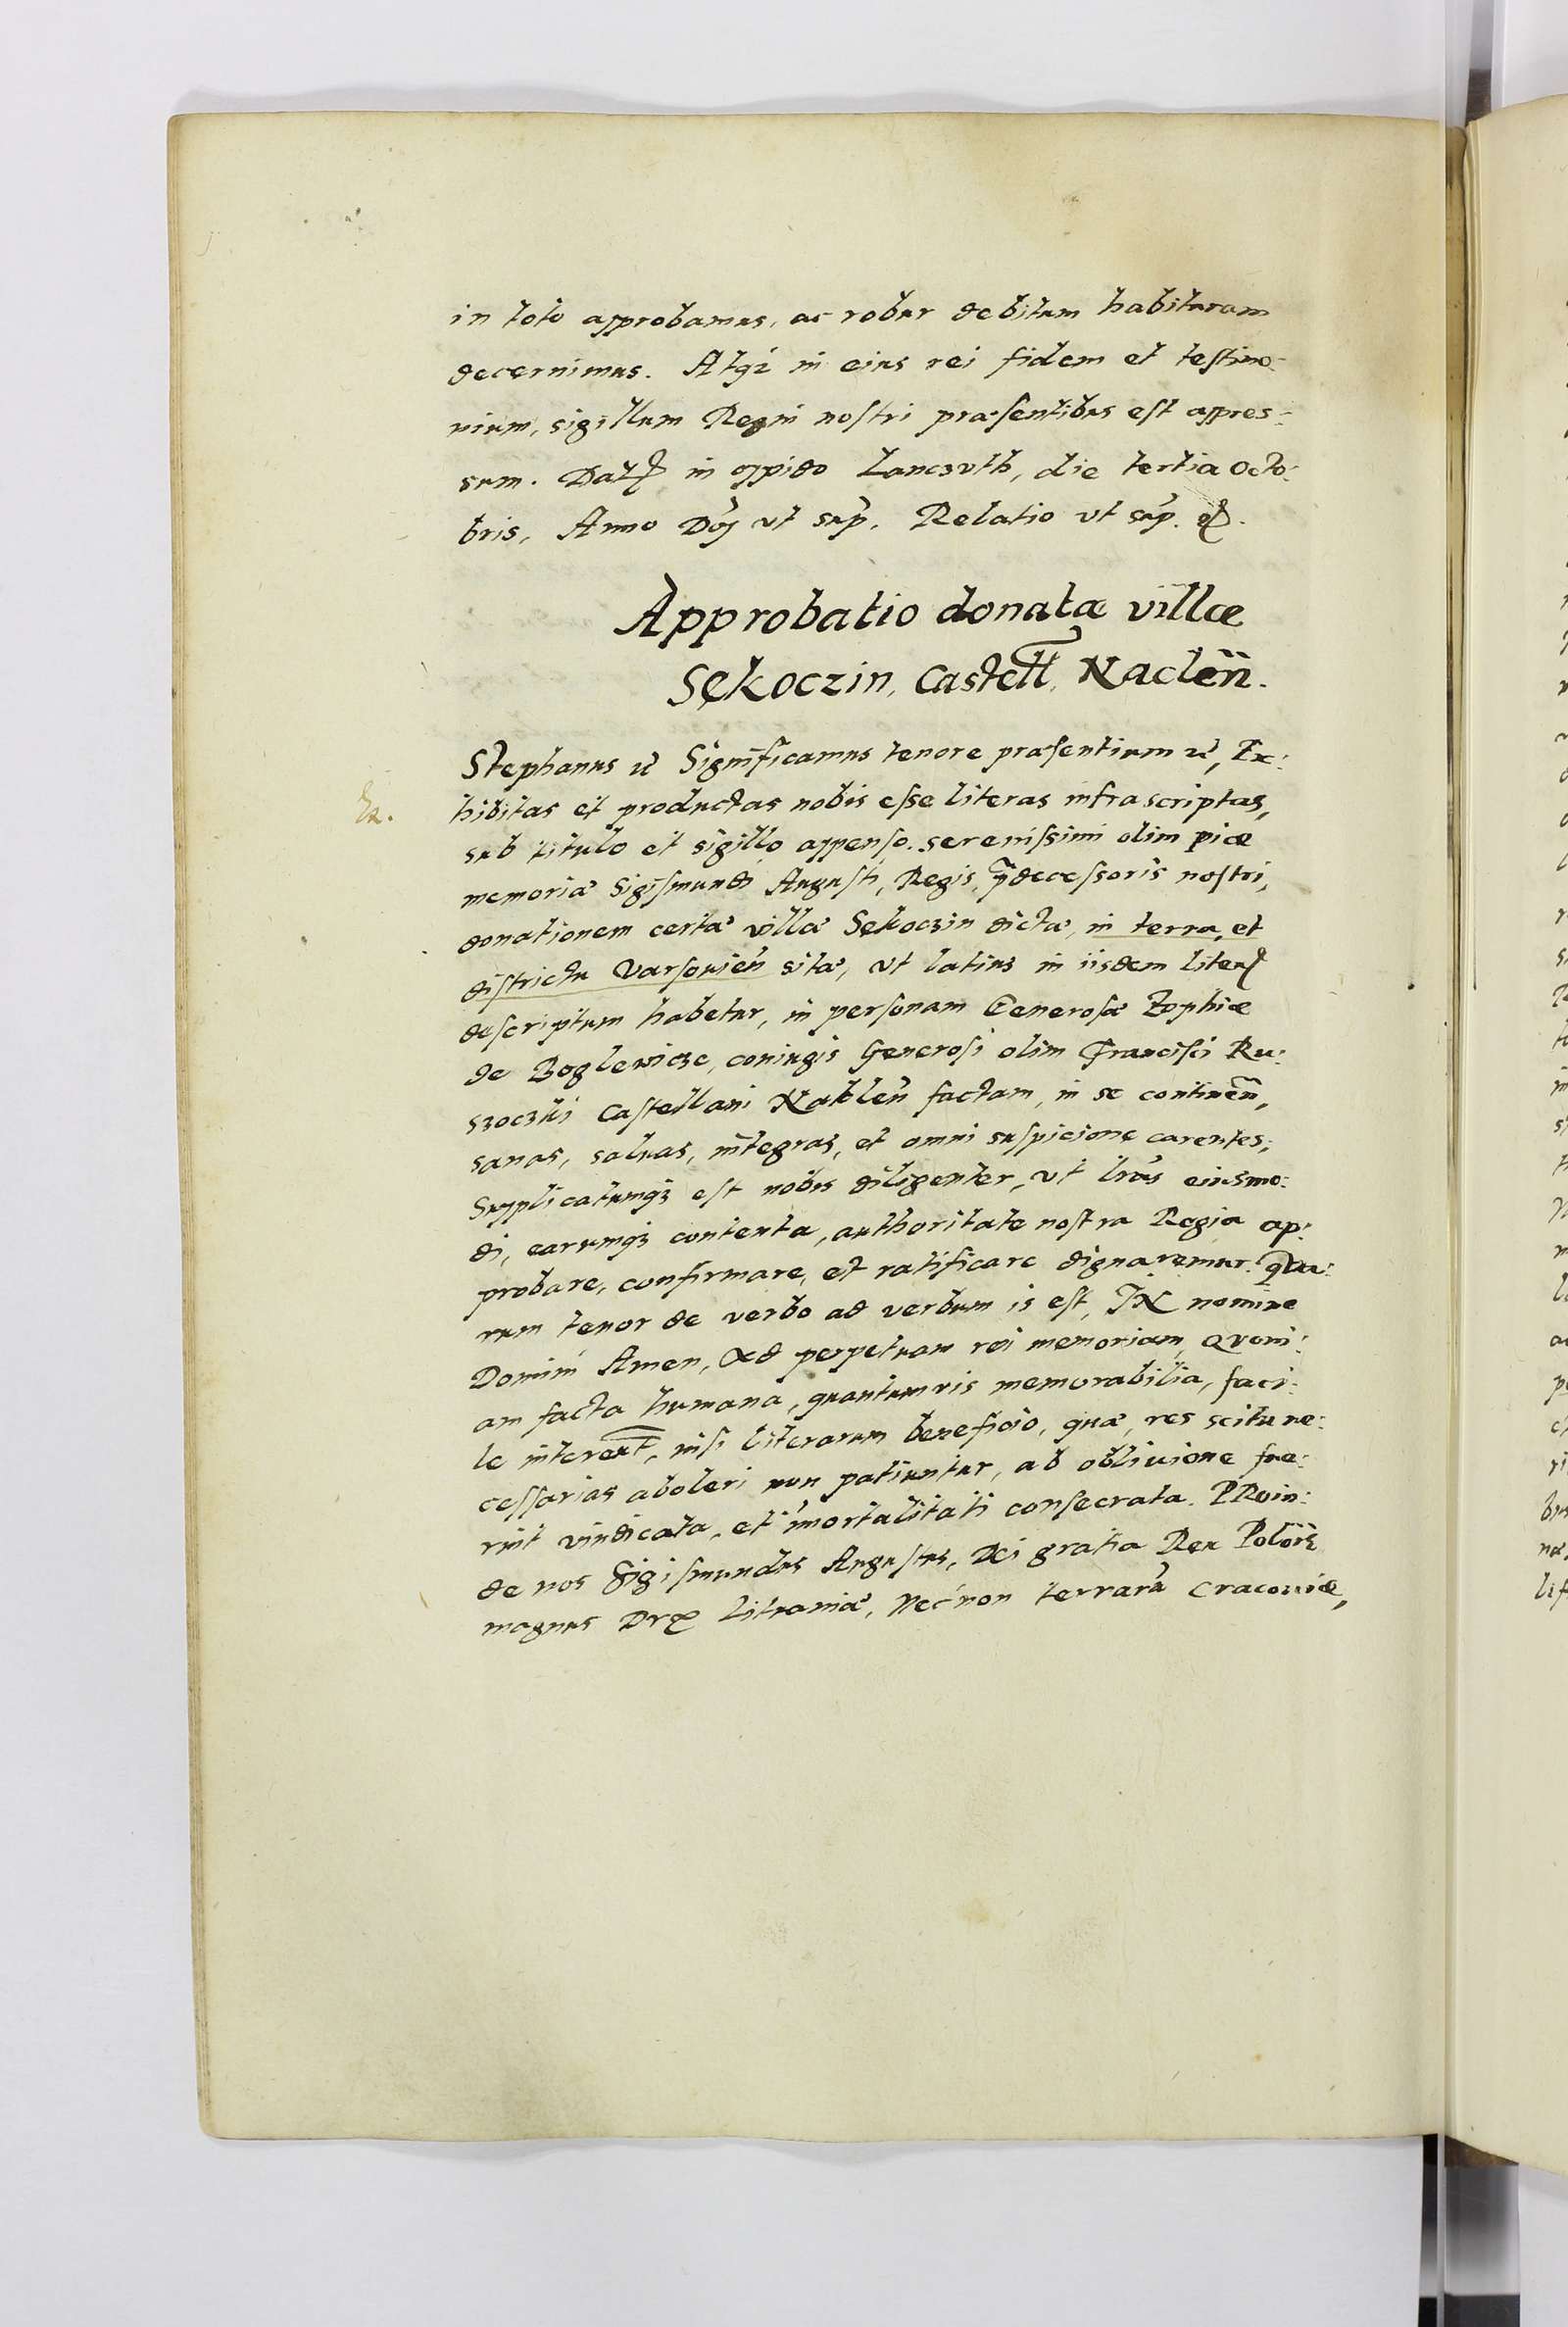 in toto approbamus, ac robur debitum habituram
decernimus. Atqȝ in eius rei fidem et testimo:
nium, sigillum Regni nostri præsentibus est appres:
sum. Datꝭ in oppido Lanczuth, die tertia Octo:
bris, Anno Dn̄j ut sup̄. Relatio ut sup̄. etꝭ.
Approbatio donatæ villæ
Sękoczin, Castell̄, Naclen̄.
Stephanus etc̄ Significamus tenore præsentium etc̄, Ex:
hibitas et productas nobis esse literas infrascriptas,
sub titulo et sigillo appenso serenissimi olim piæ
memoriæ Sigismundi Augusti, Regis, p̄decessoris nostri,
donationem certæ villæ Sękoczin dictæ, in terra, et
districtu Varsouien̄ sitæ, ut latius in iisdem literꝭ
descriptum habetur, in personam Generosæ Zophiæ
de Boglewicze, coniugis Generosi olim Francisci Ru:
szoczki Castellani Naklen̄ factam, in se continen̄,
sanas, saluas, integras, et omni suspicione carentes:
Supplicatumqȝ est nobis diligenter, ut lr̄as eiusmo:
di, earumqȝ contenta, authoritate nostra Regia ap:
probare, confirmare, et ratificare dignaremur. Qua:
rum tenor de verbo ad verbum is est, IN nomine
Domini Amen, Ad perpetuam rei memoriam, Quoni:
am facta humana, quantumvis memorabilia, faci:
le intereūt, nisi literarum beneficio, quæ, res scitu ne:
cessarias aboleri non patiuntur, ab obliuione fue:
rint vindicata, et im̄ortalitati consecrata. PRoin:
de nos Sigismundus Augustus, Dei gratia Rex Polon̄iæ
magnus Dux Lituaniæ, Nec non terrarū Cracouiæ,